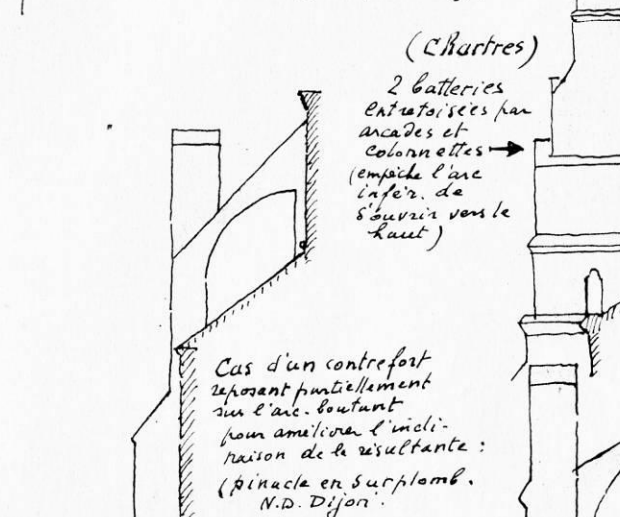 (Chartres)
2 batteries
entretoisées par
arcades et
colonnettes
(empêche l'arc
infér. de
s'ouvrir vers le
haut)
Cas d'un contrefort
reposant partiellement
sur l'arc-boutant
pour améliorer l'incli-
naison de la résultante :
(pinacle en surplomb.
N.D. Dijon.